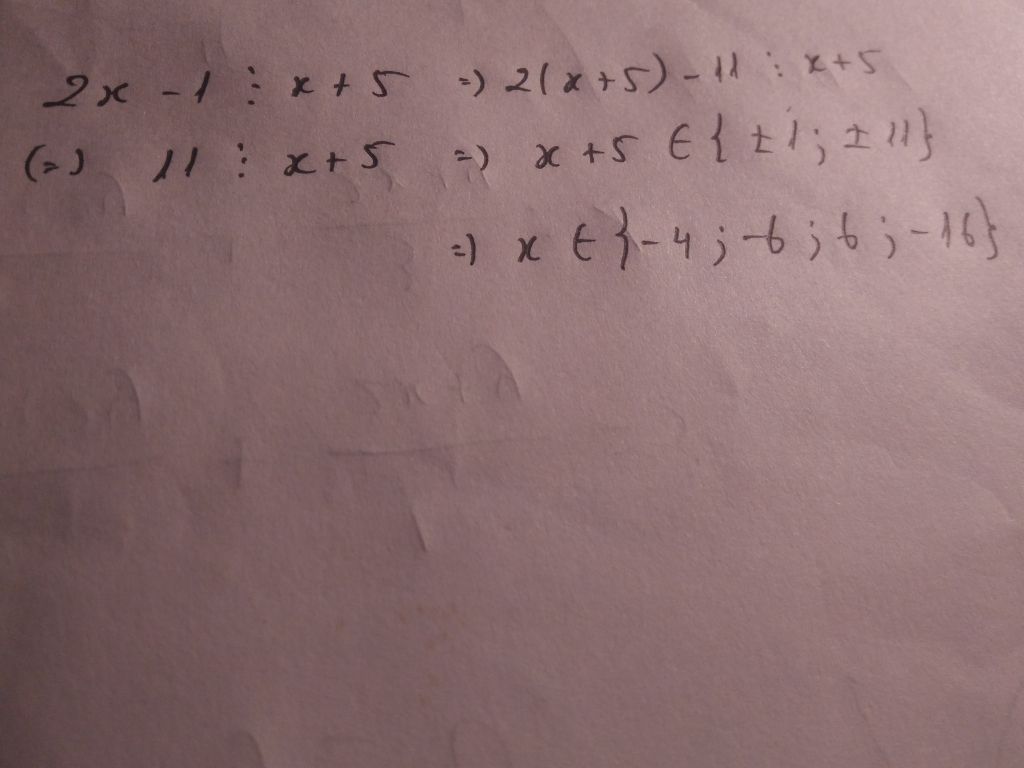 2x - 1 ⋮ x + 5 => 2(x+5) - 11 ⋮ x+5
(=) 11 ⋮ x+5 => x+5 ∈ { ±1; ±11}
=) x ∈ {-4; -6; 6; -16}